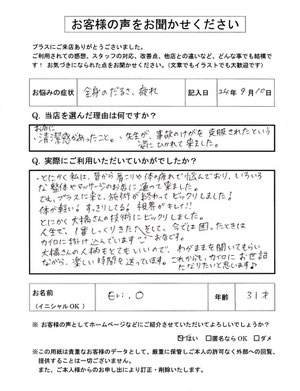 お客様の声をお聞かせください
プラスにご来店ありがとうございました。
ご利用されての感想、スタッフの対応、改善点、他店との違いなど、どんな事でも結構です！お気づきになられた点をお聞かせください。（文章でもイラストでも大歓迎です）
お悩みの症状 全身のだるさ、疲れ 記入日 24年9月10日
Q. 当店を選んだ理由は何ですか？
お店に
・清潔感があったこと。・先生が、事故のけがを克服されたという
姿にひかれて来ました。
Q. 実際にご利用いただいていかがでしたか？
・とにかく私は、昔から肩こりや体の疲れで悩んでおり、いろいろ
な整体やマッサージのお店に通って来ました。
でも、プラスに来て、施術が終わってビックリしました！
体が軽い！すっきりしてる！視界がキレイ!!
とにかく大橋さんの技術にビックリしました。
人生で、1番しっくりきたᐧᐧ
カイロに掛け込んでいます
大橋さんの人柄もとてもいいので、わがままを聞いてもらい
ながら、楽しい時間を送ってます。これからも、カイロにお世話
になりたいと思います♪
お名前
（イニシャルOK） Eri.O 年齢 31才
※ お客様の声としてホームページなどにご紹介させていただいてよろしいでしょうか？
☑はい □匿名ならOK □ダメ
※この用紙は貴重なお客様のデータとして、厳重に保管しご本人の許可なく外部への回覧、
提供することは一切ございません。
また、ご本人様からのお申し出により訂正・削除いたします。